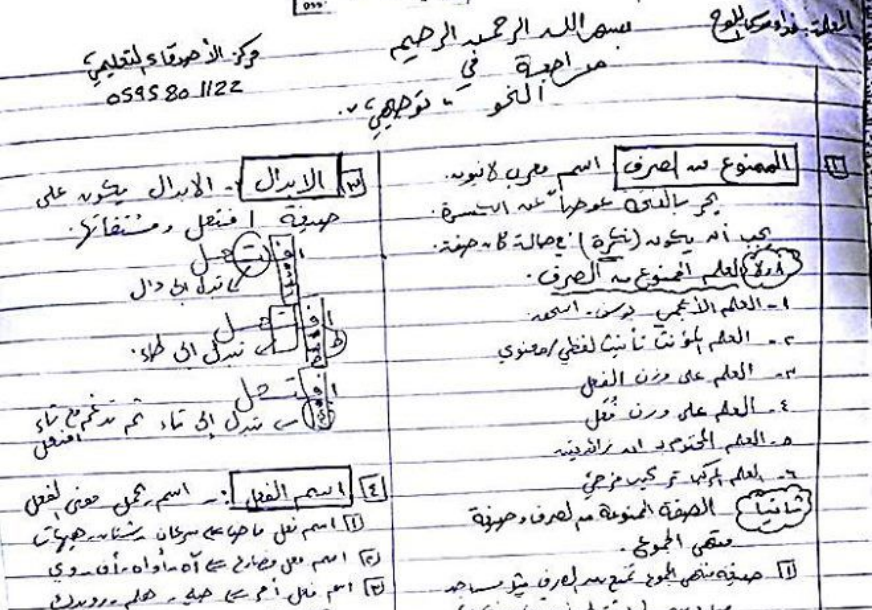 بسم الله الرحمن الرحيم
مركز الأصدقاء التعليمي
0595801122
مراجعة في
النحو " توجيهي "
١ الممنوع من الصرف اسم معرب لا ينون.
يجر بالفتحة عوضاً عن الكسرة.
يجب أن يكون (نكرة) في حالة كان صفة.
أولاً العلم الممنوع من الصرف.
١- العلم الأعجمي يوسف - اسحق
٢- العلم المؤنث تأنيث لفظي/معنوي
٣- العلم على وزن الفعل
٤- العلم على وزن فُعَل
٥- العلم المختوم بـ ان زائدتين
٦- العلم المركب تركيب مزجي
ثانياً الصفة الممنوعة من الصرف وصيغة
منتهى الجموع.
١ صيغة منتهى الجموع تمنع من الصرف مثل مساجد
٣ الابدال :- الابدال يكون على
صيغة افتعل ومشتقاتها.
ا ف ت ع ل
تبدل إلى دال
ا ف ت ع ل
تبدل إلى طاء.
ا ف ت ع ل
تبدل إلى تاء ثم تدغم مع تاء
افتعل
٤ اسم الفعل :- اسم يحمل معنى الفعل
١ اسم فعل ماضٍ سرعان - شتان - هيهات
٢ اسم فعل مضارع آه - أواه - أف - وي
٣ اسم فعل أمر صه - هلم - رويدك